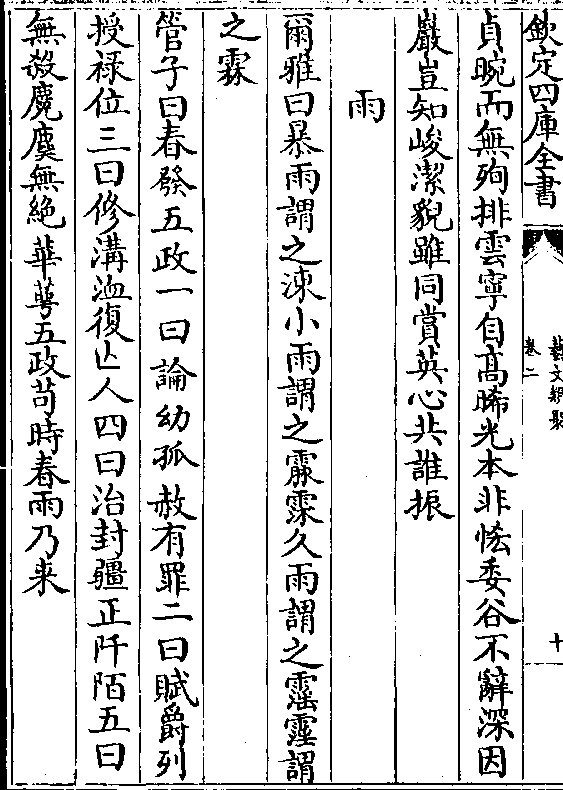 欽定四庫全書
藝文類聚
卷二
十
貞晼而無殉排雲寧自高晞光本非恡委谷不辭深因
巖豈知峻潔貌雖同賞英心共誰振
雨
爾雅曰暴雨謂之涷小雨謂之霡霂久雨謂之霪霪謂
之霖
管子曰春發五政一曰論幼孤赦有罪二曰賦爵列
授禄位三曰修溝洫復亡人四曰治封疆正阡陌五曰
無殺麑麌無絶華蕚五政苟時春雨乃来